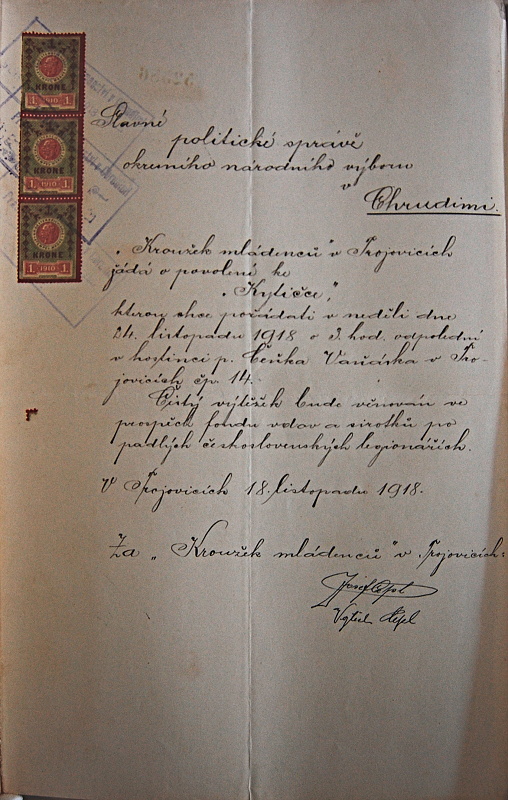 KRONE
1 1910 1
KRONE
1 1910 1
KRONE
1 1910 1
Slavné
politické správě
okresního národního výboru
v
Chrudimi.
„Kroužek mládenců" v Trojovicích
žádá o povolení ke
„Kytičce,"
kterou chce pořádati v neděli dne
24. listopadu 1918 o 3. hod. odpolední
v hostinci p. Čeňka Vaňáska v Tro-
jovicích čp. 14.
Čistý výtěžek bude věnován ve
prospěch fondu vdov a sirotků po
padlých československých legionářích.
V Trojovicích 18. listopadu 1918.
Za „Kroužek mládenců" v Trojovicích:
Josef